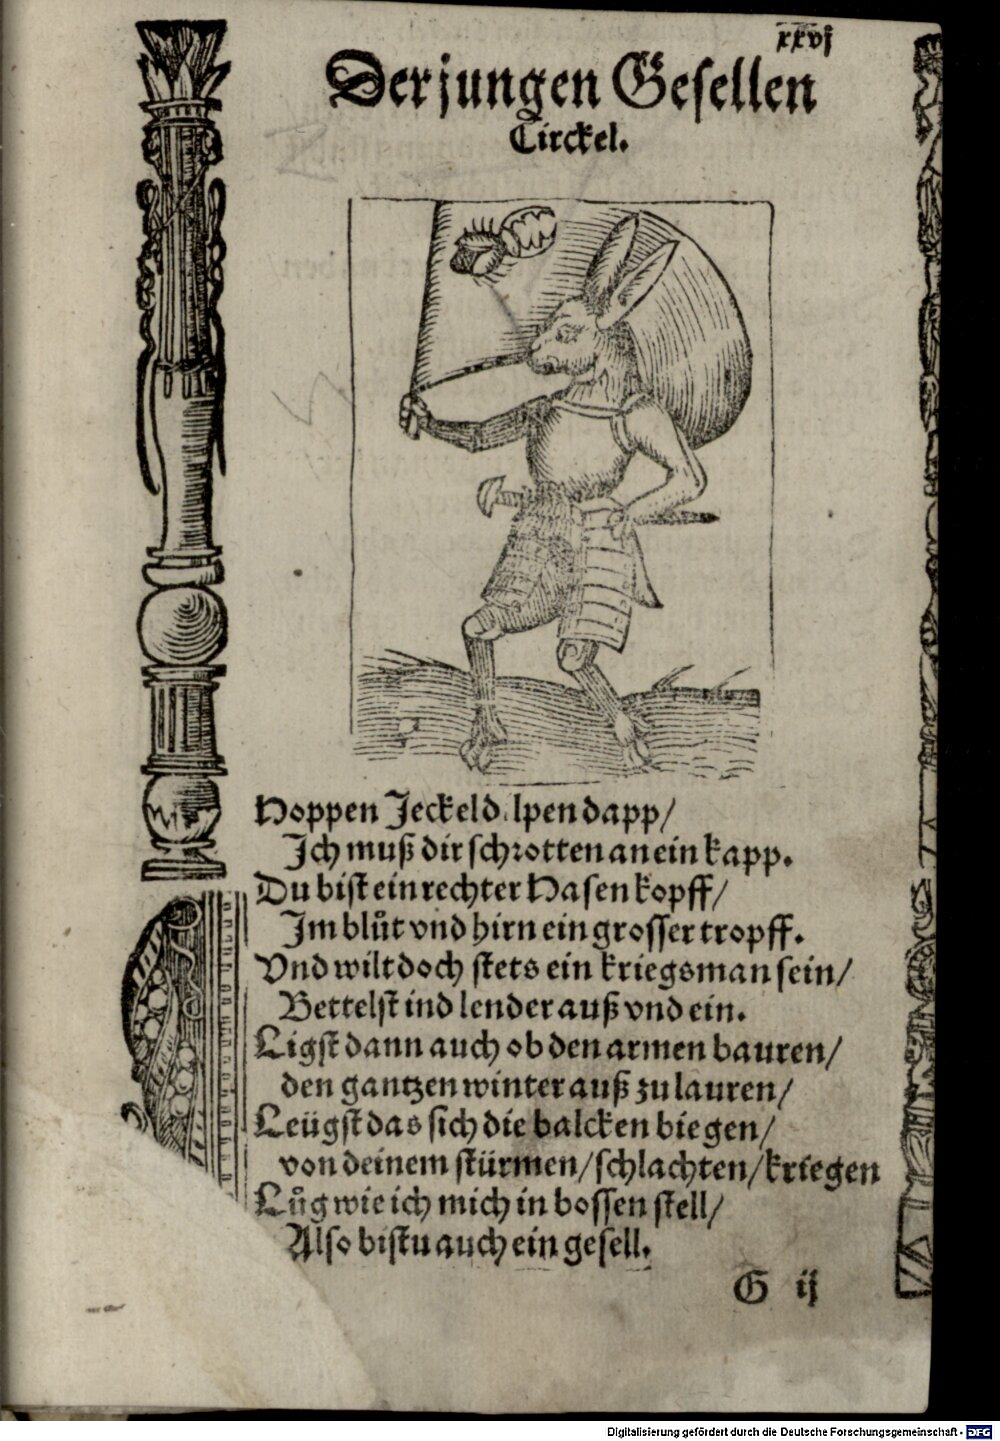 xxvj
Der jungen Gesellen
Circkel.
Hoppen Jeckel dilpen dapp/
Jch muß dir schrotten an ein kapp.
Du bist ein rechter Hasen kopff/
Jm blůt vnd hirn ein grosser tropff.
Vnd wilt doch stets ein kriegsman sein/
Bettelst ind lender auß vnd ein.
Ligst dann auch ob den armen bauren/
den gantzen winter auß zu lauren/
Leügst das sich die balcken biegen/
von deinem stürmen/schlachten/kriegen
Lůg wie ich mich in bossen stell/
Also bistu auch ein gesell.
G ij
Digitalisierung gefördert durch die Deutsche Forschungsgemeinschaft - DFG